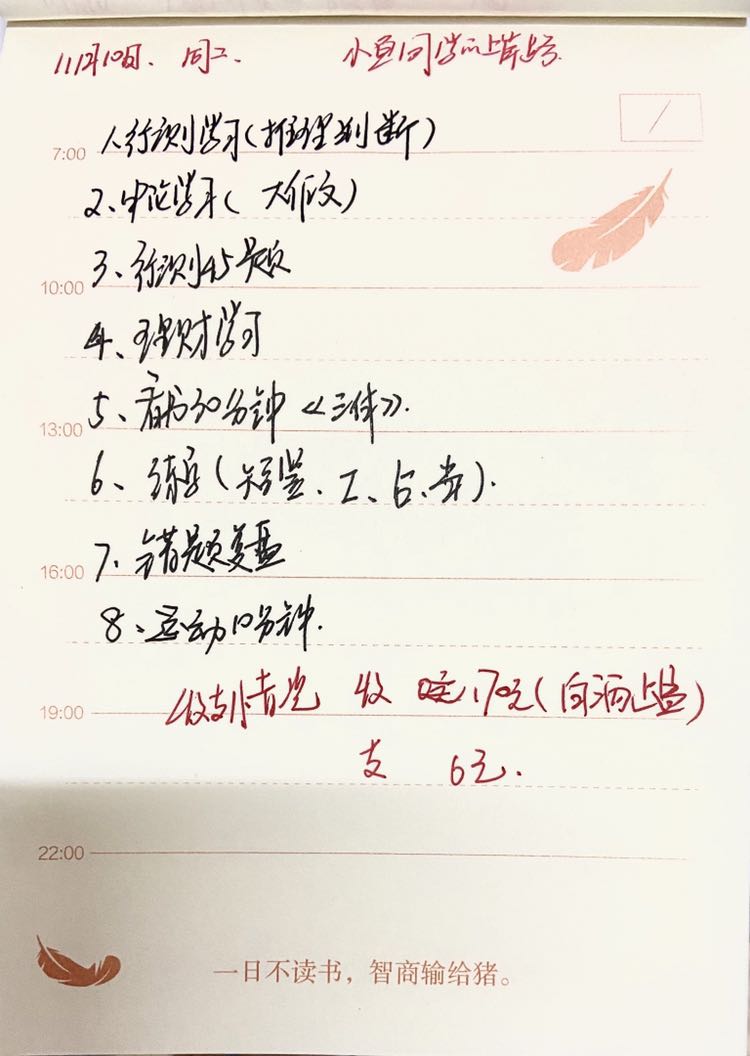 11月10日、周二、 小鱼同学的上岸号
7:00 1、行测学习(推理判断)
2、申论学习( 大作文)
3、行测45题
10:00
4、理财学习
5、看书30分钟《三体》.
13:00
6、练字(竖、工、占、常).
7、错题复盘
16:00
8、运动10分钟.
19:00 收支情况 收 170元(白酒上益)
支 6元.
22:00
一日不读书，智商输给猪。